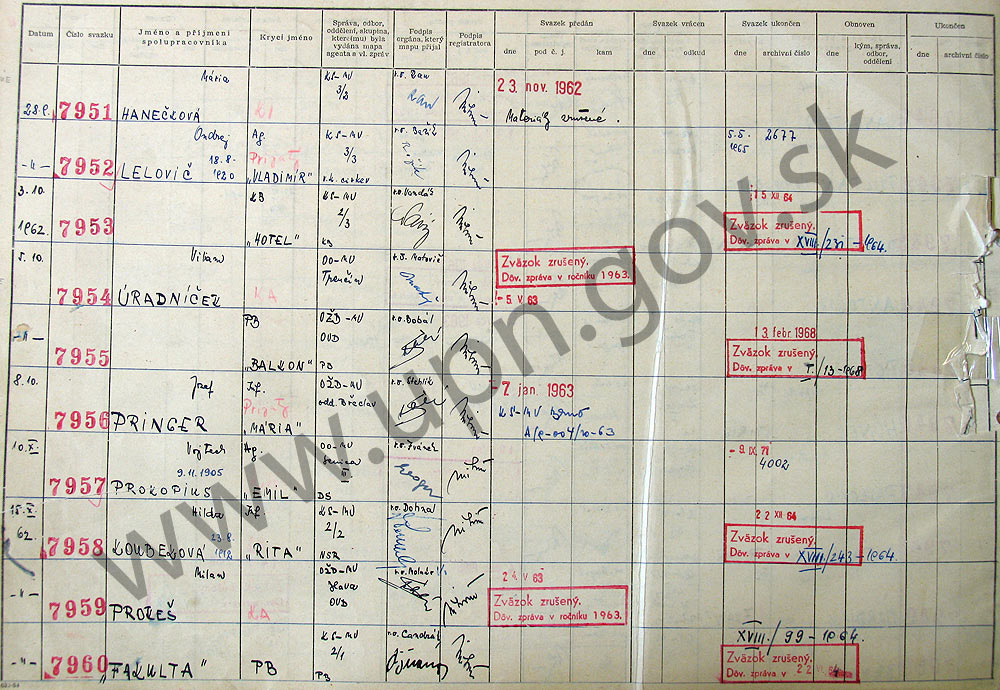 Datum
Číslo svazku
Jméno a příjmení
spolupracovníka
Krycí jméno
Správa, odbor,
oddělení, skupina,
které(mu) byla
vydána mapa
agenta a vl. zpráv
Podpis
orgána, který
mapu přijal
Podpis
registratora
Svazek předán
dne
pod č. j.
kam
Svazek vrácen
dne
odkud
Svazek ukončen
dne
archivní číslo
Obnoven
dne
kým, správa,
odbor,
oddělení
Ukončen
dne
archivní číslo
Mária
KS-MV
23. nov. 1962
28.9.
7951
HANEČKOVÁ
KI
3/2
Materiály zrušené.
Ondrej
Ag.
KS-MV
5.5.
2677
18.8.
3/3
1965
-"-
7952
LELOVIČ
1920
"VLADIMÍR"
r.k. cirkev
3.10.
KB
KS-MV
15 XII 64
1962.
7953
2/3
Zväzok zrušený.
Dôv. zpráva v XVIII./231-1964.
"HOTEL"
KB
5.10.
Viliam
OO-MV
Zväzok zrušený.
Trenčín
Dôv. zpráva v ročníku 1963.
7954
ÚRADNÍČEK
KA
-5. V 63
PB
OŽD-MV
r.s. Bobál
13. febr. 1968
-"-
OVD
Zväzok zrušený.
7955
"BALKON"
PB
Dôv. zpráva v I./13-1968
8.10.
Jozef
Inf.
OŽD-MV
r.s. Stehlík
-7 jan. 1963
odd. Břeclav
KS-MV Brno
7956
PRINGER
"MÁRIA"
A/P-004/20-63
10.XI.
Vojtech
Ag.
OO-MV
-9. IX. 71
Senica
4002
9.11.1905
7957
PROKOPIUS
"EMIL"
DS
15.XI.
Hilda
Inf.
KS-MV
r.s. Dohnal
22 XII 64
62.
2/2
Zväzok zrušený.
7958
KOUBEKOVÁ
1912
"RITA"
NSR
Dôv. zpráva v XVIII./243-1964.
Milan
OŽD-MV
24. V 63
-"-
OVD
Zväzok zrušený.
7959
PROKEŠ
KA
Dôv. zpráva v ročníku 1963.
KS-MV
XVIII./99-1964.
-"-
7960
"FAKULTA"
PB
2/1
Zväzok zrušený.
PB
Dôv. zpráva v
www.upn.gov.sk